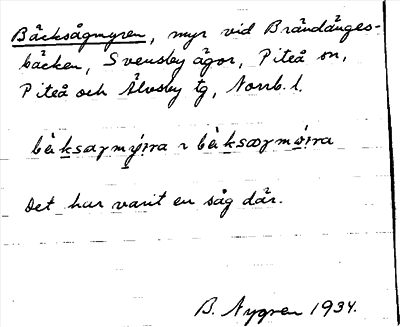 Bäcksågmyren, myr vid Brändänges-
bäcken, Svensby ägor, Piteå sn,
Piteå och Älvsby tg, Norrb. l.
Det har varit en såg där.
B. Nygren 1934.